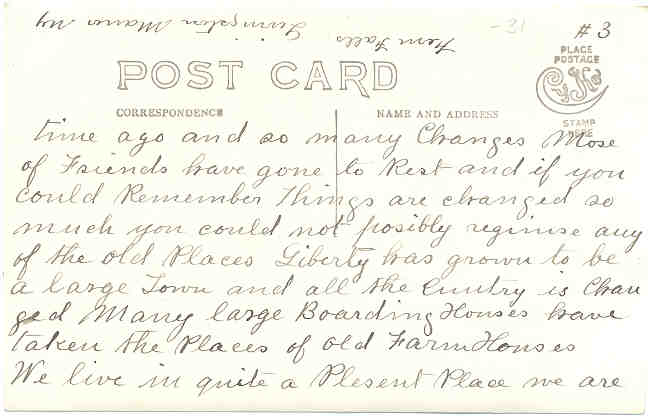 Fern Falls Livingston Manor Ny
-31
#3
POST CARD
PLACE
POSTAGE
STAMP
HERE
CORRESPONDENCE
NAME AND ADDRESS
time ago and so many Changes Mose
of Friends have gone to Rest and if you
could Remember Things are changed so
much you could not posibly reginise any
of the old Places Liberty has grown to be
a large Town and all the Cuntry is Chan
ged Many large Boarding Houses have
taken the Places of old Farm Houses
We live in quite a Plesent Place we are